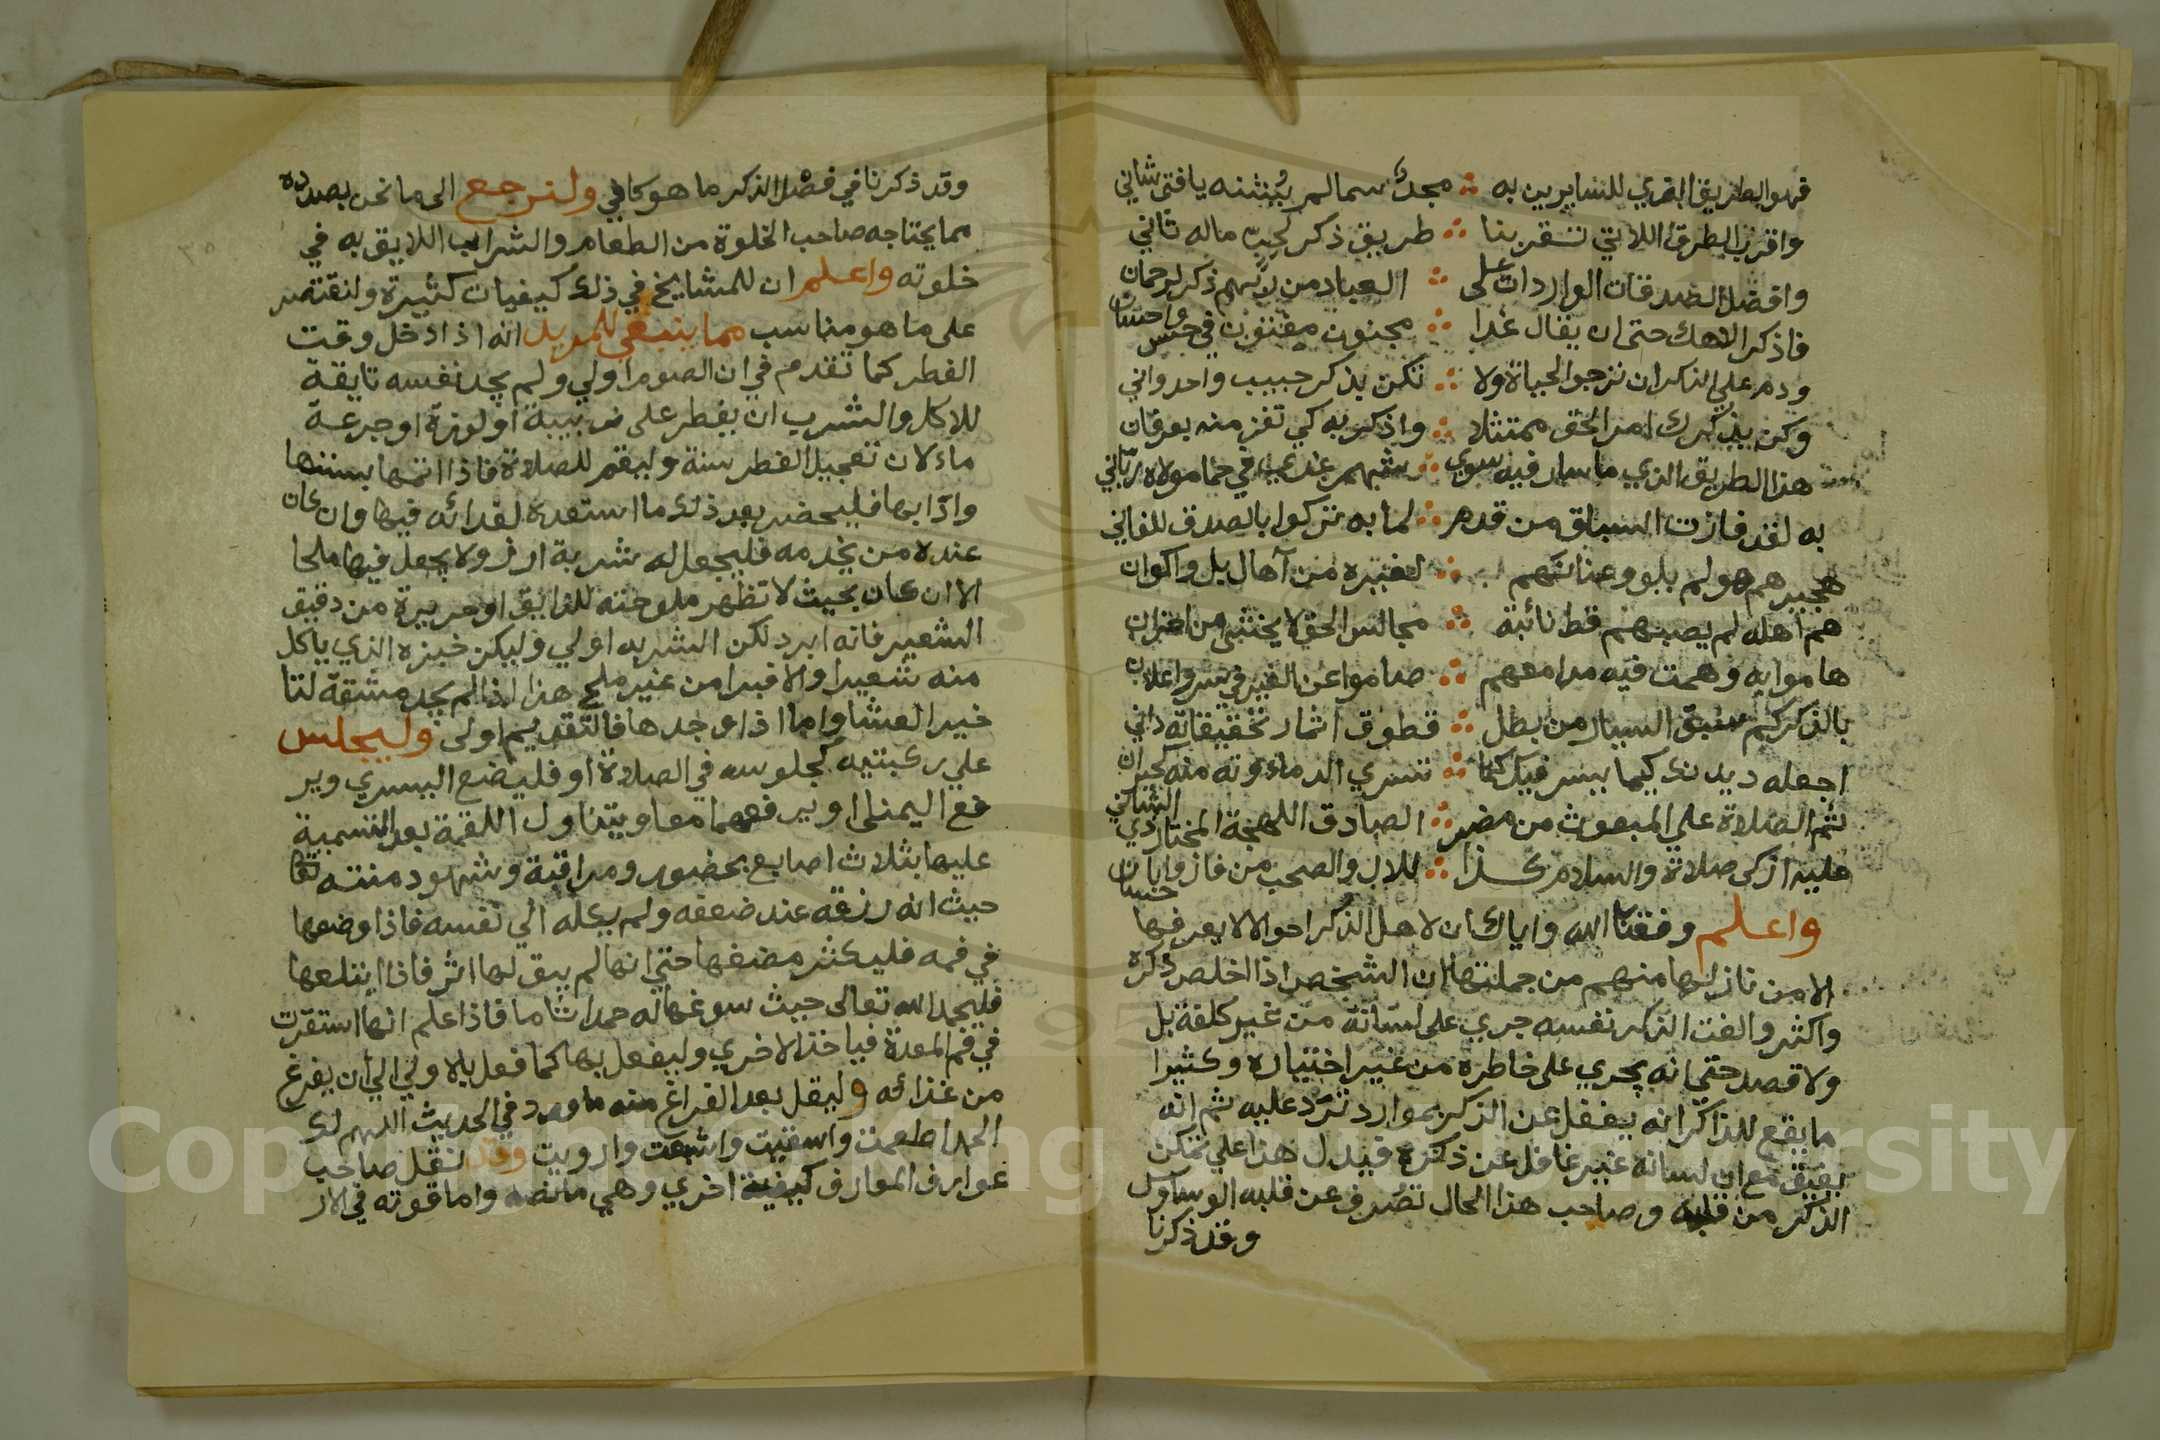 فهو الطريق القوي للسايرين به ∴ مجدك سما لم يثنه يا فتى شاني
واقرب الطرق اللاتي تقربنا ∴ طريق ذكر لحب ماله ثاني
وافضل الصدقات الواردات على ∴ العباد من لآلهم ذكر لرحمان واحسان
فاذكر الاهك حتى ان يقال غدا ∴ مجنون مفتون في حبس
ودم على الذكر ان ترجو الحياة ولا ∴ تكن بذكر حبيب واحد واني
وكن بذكرك امر الحق ممتثلا ∴ واذكر به كي تفز منه بعرفان
هذا الطريق الذي ما سار فيه سوى ∴ شهم غدى في حما مولاه رباني
به لقد فازت السباق من قدم ∴ لما به تركوا بالصدق للفاني
هجيرهم هو لم يلوو عنانهم ∴ لغيره من آهال بل واكوان
هم اهله لم يصبهم قط نائبة ∴ مجالس الحق لا يخشى من
هاموا به وهمت فيه مدامعهم ∴ صاموا عن الغير في سر واعلان
بالذكر كم سبق السيار من بطل ∴ قطوف اثمار تحقيقاته داني
اجعله ديدنك كيما يسر فيك كما ∴ تسري الدماء وته منه كحيران
ثم الصلاة على المبعوث من مضر ∴ الصادق اللهجة المختار ذي الشاني
عليه ازكى صلاة والسلام كذا ∴ للال والصحب من فاز وابان حسان
واعلم وفقنا الله واياك ان لاهل الذكر احوالا لا يعرفها
الا من نازلها منهم من جملتها ان الشخص اذا اخلص ذكره
واكثر والفت الذكر نفسه جري على لسانه من غير كلفة بل
ولا قصد حتى انه يجري على خاطره من غير اختياره وكثيرا
ما يقع للذاكر انه يغفل عن الذكر بموارد ترد عليه ثم انه
يفيق مع ان لسانه غير غافل عن ذكره فيدل هذا على تمكن
الذكر من قلبه وصاحب هذا الحال تصرف عن قلبه الوساوس
وقد ذكرنا
وقد ذكرنا في فضل الذكر ما هو كافي ولنرجع الى ما نحن بصدده
مما يحتاجه صاحب الخلوة من الطعام والشراب اللايق به في
خلوته واعلم ان للمشايخ في ذلك كيفيات كثيرة ولنقتصر
على ما هو مناسب مما ينبغي للمريد انه اذا دخل وقت
الفطر كما تقدم في ان الصوم اولي ولم يجد نفسه تايقة
للاكل والشرب ان يفطر على زبيبة او لوزة او جرعة
ماء لان تعجيل الفطر سنة وليقم للصلاة فاذا اتمها بسننها
وآدابها فليحضر بعد ذلك ما استعده لغدائه فيها وان كان
عنده من يخدمه فليجعل له شربة ارز ولا يجعل فيها ملحا
الا ان كان بحيث لا تظهر ملوحته للذايق او حريرة من دقيق
الشعير فانه ابرد لكن الشربه اولي وليكن خبزه الذي ياكل
منه شعيرا والا فبرا من غير ملح هذا اذا لم يجد مشقة لتا
خير العشا واما اذا وجدها فالتقديم اولى وليجلس
علي ركبتيه كجلوسه في الصلاة او فليضع اليسري وير
فع اليمنى او يرفعهما معا ويتناول اللقمة بعد التسمية
عليها بثلاث اصابع بحضور ومراقبة وشهود منته تعا
حيث انه رزقه عند ضعفه ولم يكله الي نفسه فاذا وضعها
في فمه فليكثر مضغها حتى انها لم يبق لها اثر فاذا ابتلعها
فليحمد الله تعالى حيث سوغها له حمدا تاما فاذا علم انها استقرت
في فم المعدة فياخذ الاخري وليفعل بها كما فعل بالاولي الي ان يفرغ
من غذائه وليقل بعد الفراغ منه ما ورد في الحديث اللهم لك
الحمد اطعمت واسقيت واشبعت وارويت وقد نقل صاحب
عوارف المعارف كيفية اخري وهي ما نصه واما قوته في الار